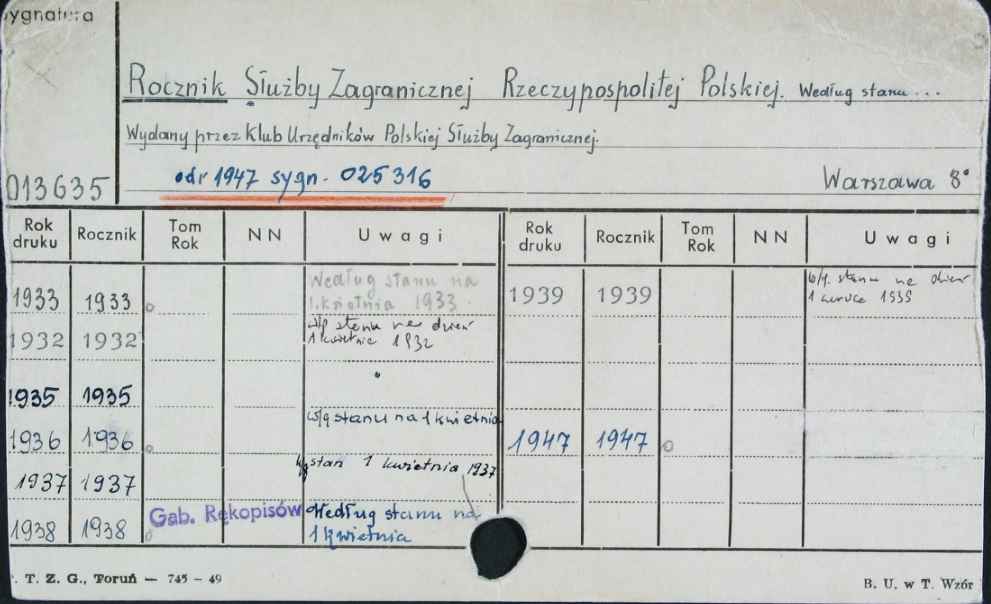 Sygnatura
Rocznik Służby Zagranicznej Rzeczypospolitej Polskiej. Według stanu...
Wydany przez Klub Urzędników Polskiej Służby Zagranicznej.
013635 odr 1947 sygn. 025316 Warszawa 8°
Rok druku Rocznik Tom Rok NN Uwagi Rok druku Rocznik Tom Rok NN Uwagi
1933 1933 Według stanu na 1. kwietnia 1933. 1939 1939 wg. stanu na dzień 1 1939
1932 1932 wg stanu na dzień 1 kwietnia 1932
1935 1935 "
1936 1936 w/g stanu na 1 kwietnia 1947 1947
1937 1937 wg stan 1 kwietnia 1937
1938 1938 Gab. Rękopisów Według stanu na 1 kwietnia
. T. Z. G., Toruń — 745 – 49 B. U. w T. Wzór